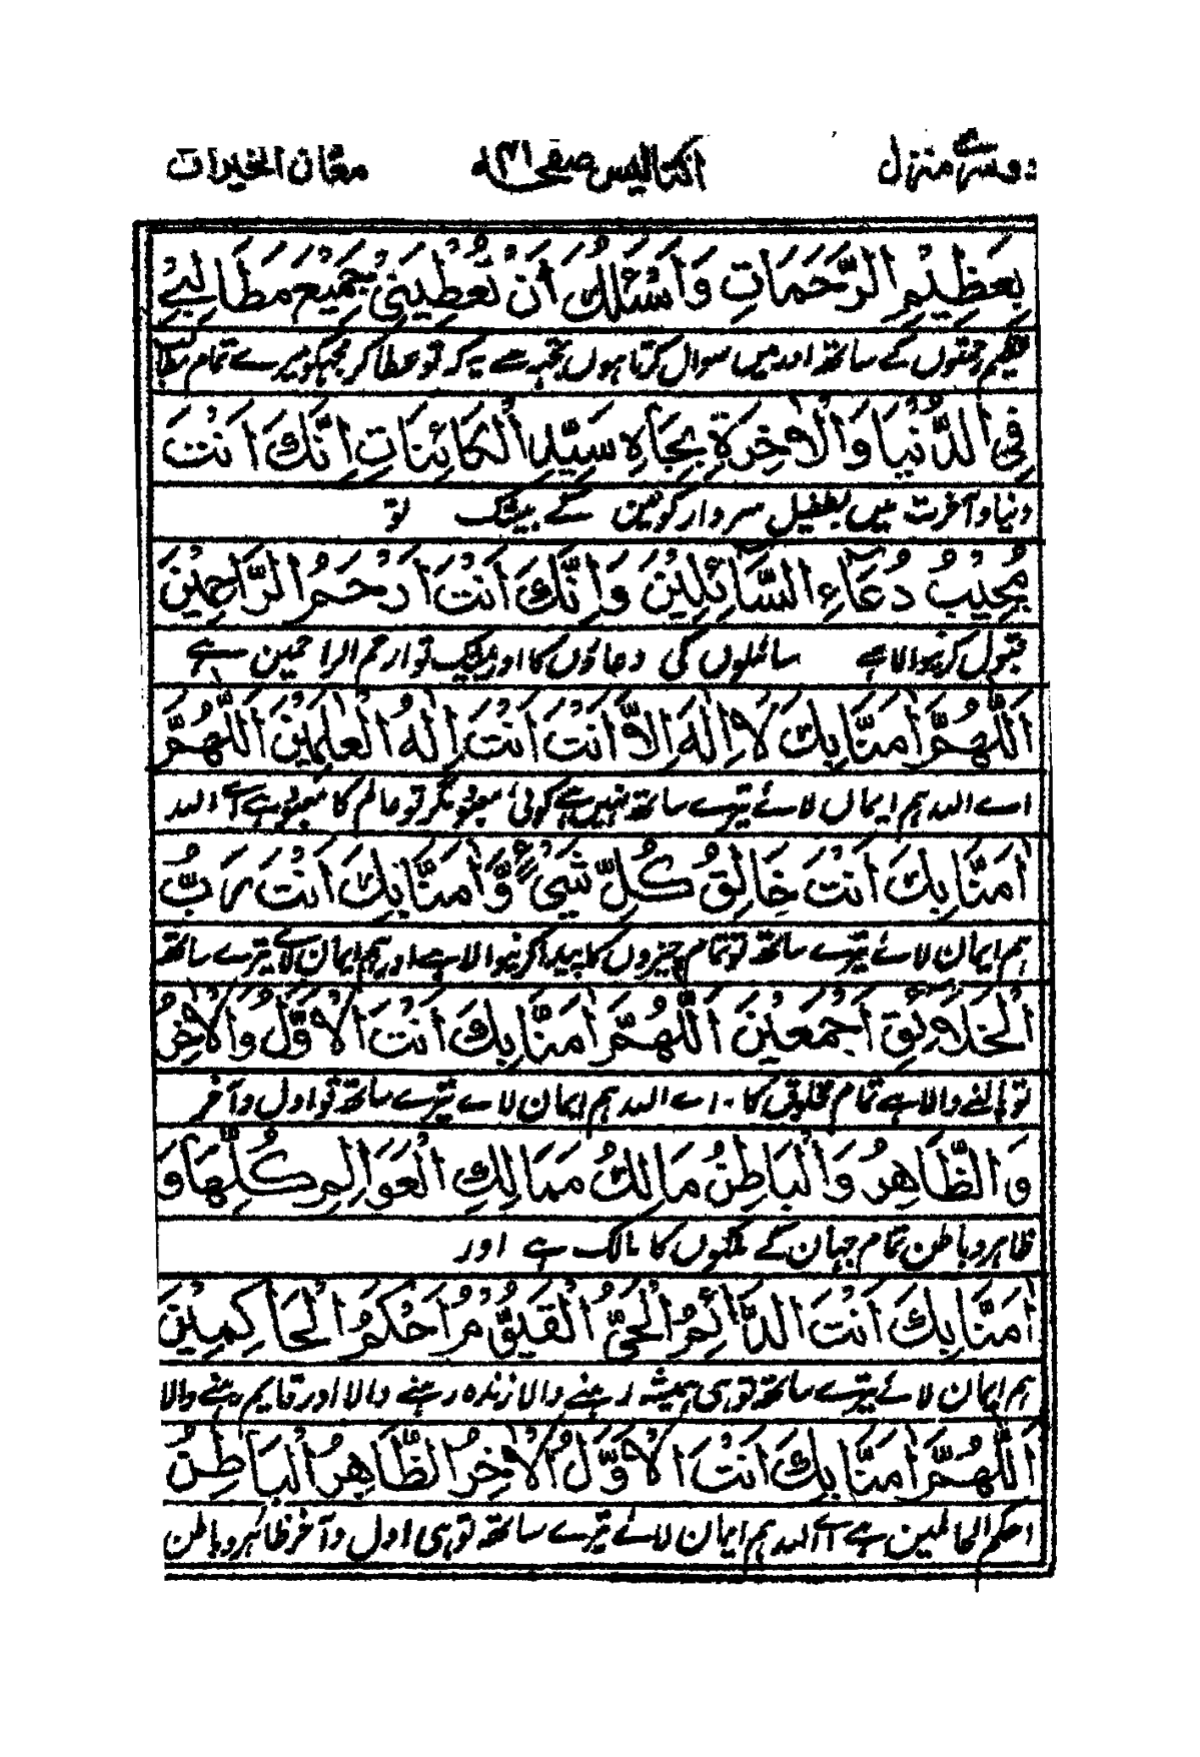 دوسری منزل اکتالیس صفحہ ۴۱ معان الخیرات
بِعَظِيْمِ الرَّحَمَاتِ وَاَسْئَلُكَ اَنْ تُعْطِيَنِيْ جَمِيْعَ مَطَالِبِيْ
عظیم رحمتوں کے ساتھ اور میں سوال کرتا ہوں تجھ سے یہ کہ تو عطا کر مجھکو میرے تمام مطالب
فِي الدُّنْيَا وَالْاٰخِرَةِ بِجَاهِ سَيِّدِ الْكَائِنَاتِ اِنَّكَ اَنْتَ
دنیا و آخرت میں بطفیل سردار کونین کے بیشک تو
مُجِيْبُ دُعَآءِ السَّآئِلِيْنَ وَاِنَّكَ اَنْتَ اَرْحَمُ الرَّاحِمِيْنَ
قبول کرنیوالا ہے سائلوں کی دعاؤں کا اور بیشک تو ارحم الراحمین ہے
اَللّٰهُمَّ اٰمَنَّا بِكَ لَا اِلٰهَ اِلَّا اَنْتَ اَنْتَ اِلٰهُ الْعٰلَمِيْنَ اَللّٰهُمَّ
اے اللہ ہم ایمان لائے تیرے ساتھ نہیں ہے کوئی معبود مگر تو عالم کا معبود ہے اے اللہ
اٰمَنَّا بِكَ اَنْتَ خَالِقُ كُلِّ شَيْءٍ وَّاٰمَنَّا بِكَ اَنْتَ رَبُّ
ہم ایمان لائے تیرے ساتھ تو تمام چیزوں کا پیدا کرنیوالا ہے اور ہم ایمان لائے تیرے ساتھ
الْخَلَائِقِ اَجْمَعِيْنَ اَللّٰهُمَّ اٰمَنَّا بِكَ اَنْتَ الْاَوَّلُ وَالْاٰخِرُ
تو پالنے والا ہے تمام مخلوق کا۔ اے اللہ ہم ایمان لائے تیرے ساتھ تو اول و آخر
وَالظَّاهِرُ وَالْبَاطِنُ مَالِكُ مَمَالِكِ الْعَوَالِمِ كُلِّهَا وَ
ظاہر و باطن تمام جہان کے ملکوں کا مالک ہے اور
اٰمَنَّا بِكَ اَنْتَ الدَّائِمُ الْحَيُّ الْقَيُّوْمُ اَحْكَمُ الْحَاكِمِيْنَ
ہم ایمان لائے تیرے ساتھ تو ہی ہمیشہ رہنے والا زندہ رہنے والا اور قایم رہنے والا
اَللّٰهُمَّ اٰمَنَّا بِكَ اَنْتَ الْاَوَّلُ الْاٰخِرُ الظَّاهِرُ الْبَاطِنُ
احکم الحاکمین ہے اے اللہ ہم ایمان لائے تیرے ساتھ تو ہی اول و آخر ظاہر و باطن